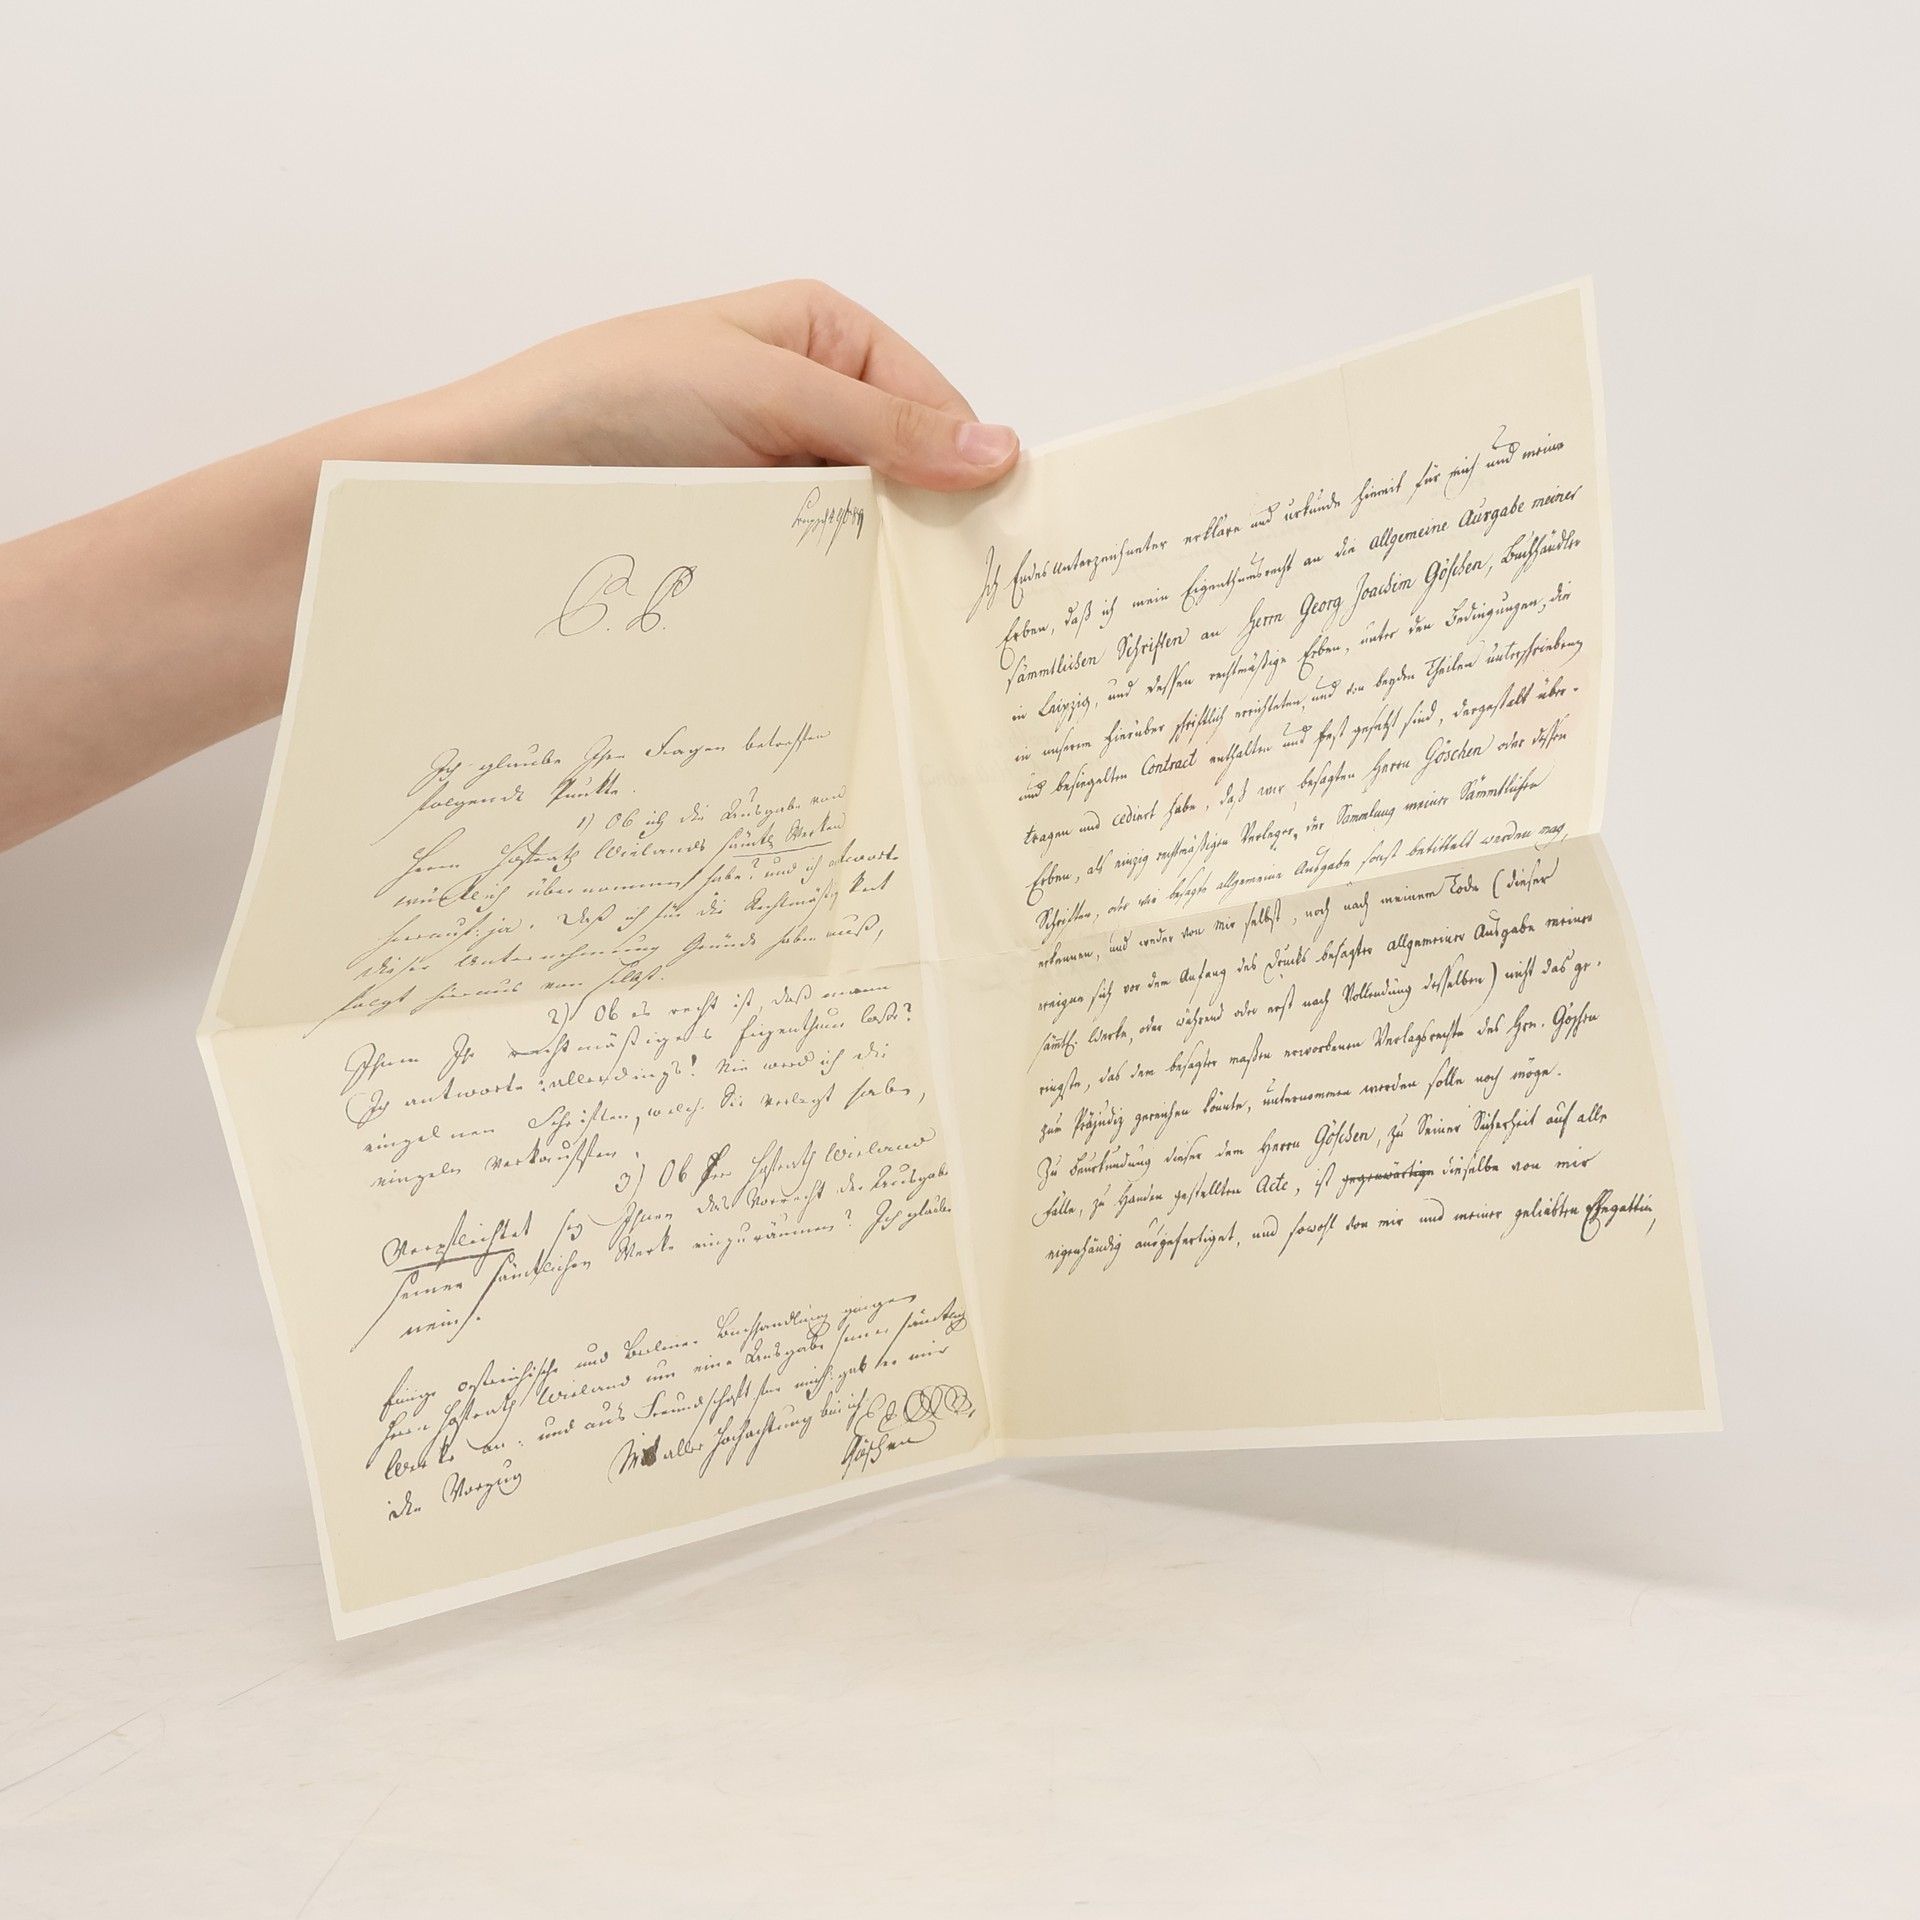 P. P.
Ich glaube Ihre Fragen betreffen
folgende Punkte.
1) Ob ich die Ausgabe von
Herrn Hofrath Wielands sämtl. Werken
würklich übernommen habe? und ich antworte
hierauf: ja. Daß ich für die Rechtmäßigkeit
dieser Unternehmung Gründe haben muß,
folgt hieraus von selbst.
2) Ob es recht ist, daß mann
Ihnen Ihr rechtmäßiges Eigenthum laße?
Ich antworte: allerdings! Nie werd ich die
einzelnen Schriften, welche Sie verlegt haben,
einzeln verkaufen.
3) Ob Herr Hofrath Wieland
Verpflichtet sey Ihnen das Vorrecht der Ausgabe
seiner sämtlichen Werke einzuräumen? Ich glaube
nein.
Einige östreichische und Berliner Buchhandlung gingen
Herrn Hofrath Wieland um eine Ausgabe seiner sämtlich
Werke an: und aus Freundschaft für mich: gab er mir
den Vorzug
Mit aller Hochachtung bin ich
Göschen
Ich Endesunterzeichneter erkläre und urkunde hiemit für mich und meine
Erben, daß ich mein Eigenthumsrecht an die allgemeine Ausgabe meiner
sämmtlichen Schriften an Herrn Georg Joachim Göschen, Buchhändler
in Leipzig, und dessen rechtmäßige Erben, unter den Bedingungen, die
in unserm hierüber schriftlich errichteten, und von beyden Theilen unterschriebenen
und besiegelten Contract enthalten und fest gesetzt sind, dergestalt über-
tragen und cediert habe, daß wir besagten Herrn Göschen oder dessen
Erben, als einzig rechtmäßigen Verleger, der Sammlung meiner Sämmtlichen
Schriften, oder wie besagte allgemeine Ausgabe sonst betittelt werden mag,
erkennen, und weder von mir selbst, noch nach meinem Tode (dieser
ereigne sich vor dem Anfang des Drucks besagter allgemeiner Ausgabe meiner
sämtl. Werke, oder während oder erst nach Vollendung desselben) nicht das ge-
ringste, das dem besagter maßen erworbenen Verlagsrechte des Hrn. Göschen
zum Präjudiz gereichen könnte, unternommen werden solle noch möge.
Zu Beurkundung dieser dem Herrn Göschen, zu Seiner Sicherheit auf alle
Fälle, zu Handen gestellten Acte, ist gegenwärtige dieselbe von mir
eigenhändig ausgefertiget, und sowohl von mir und meiner geliebten Ehegattin,